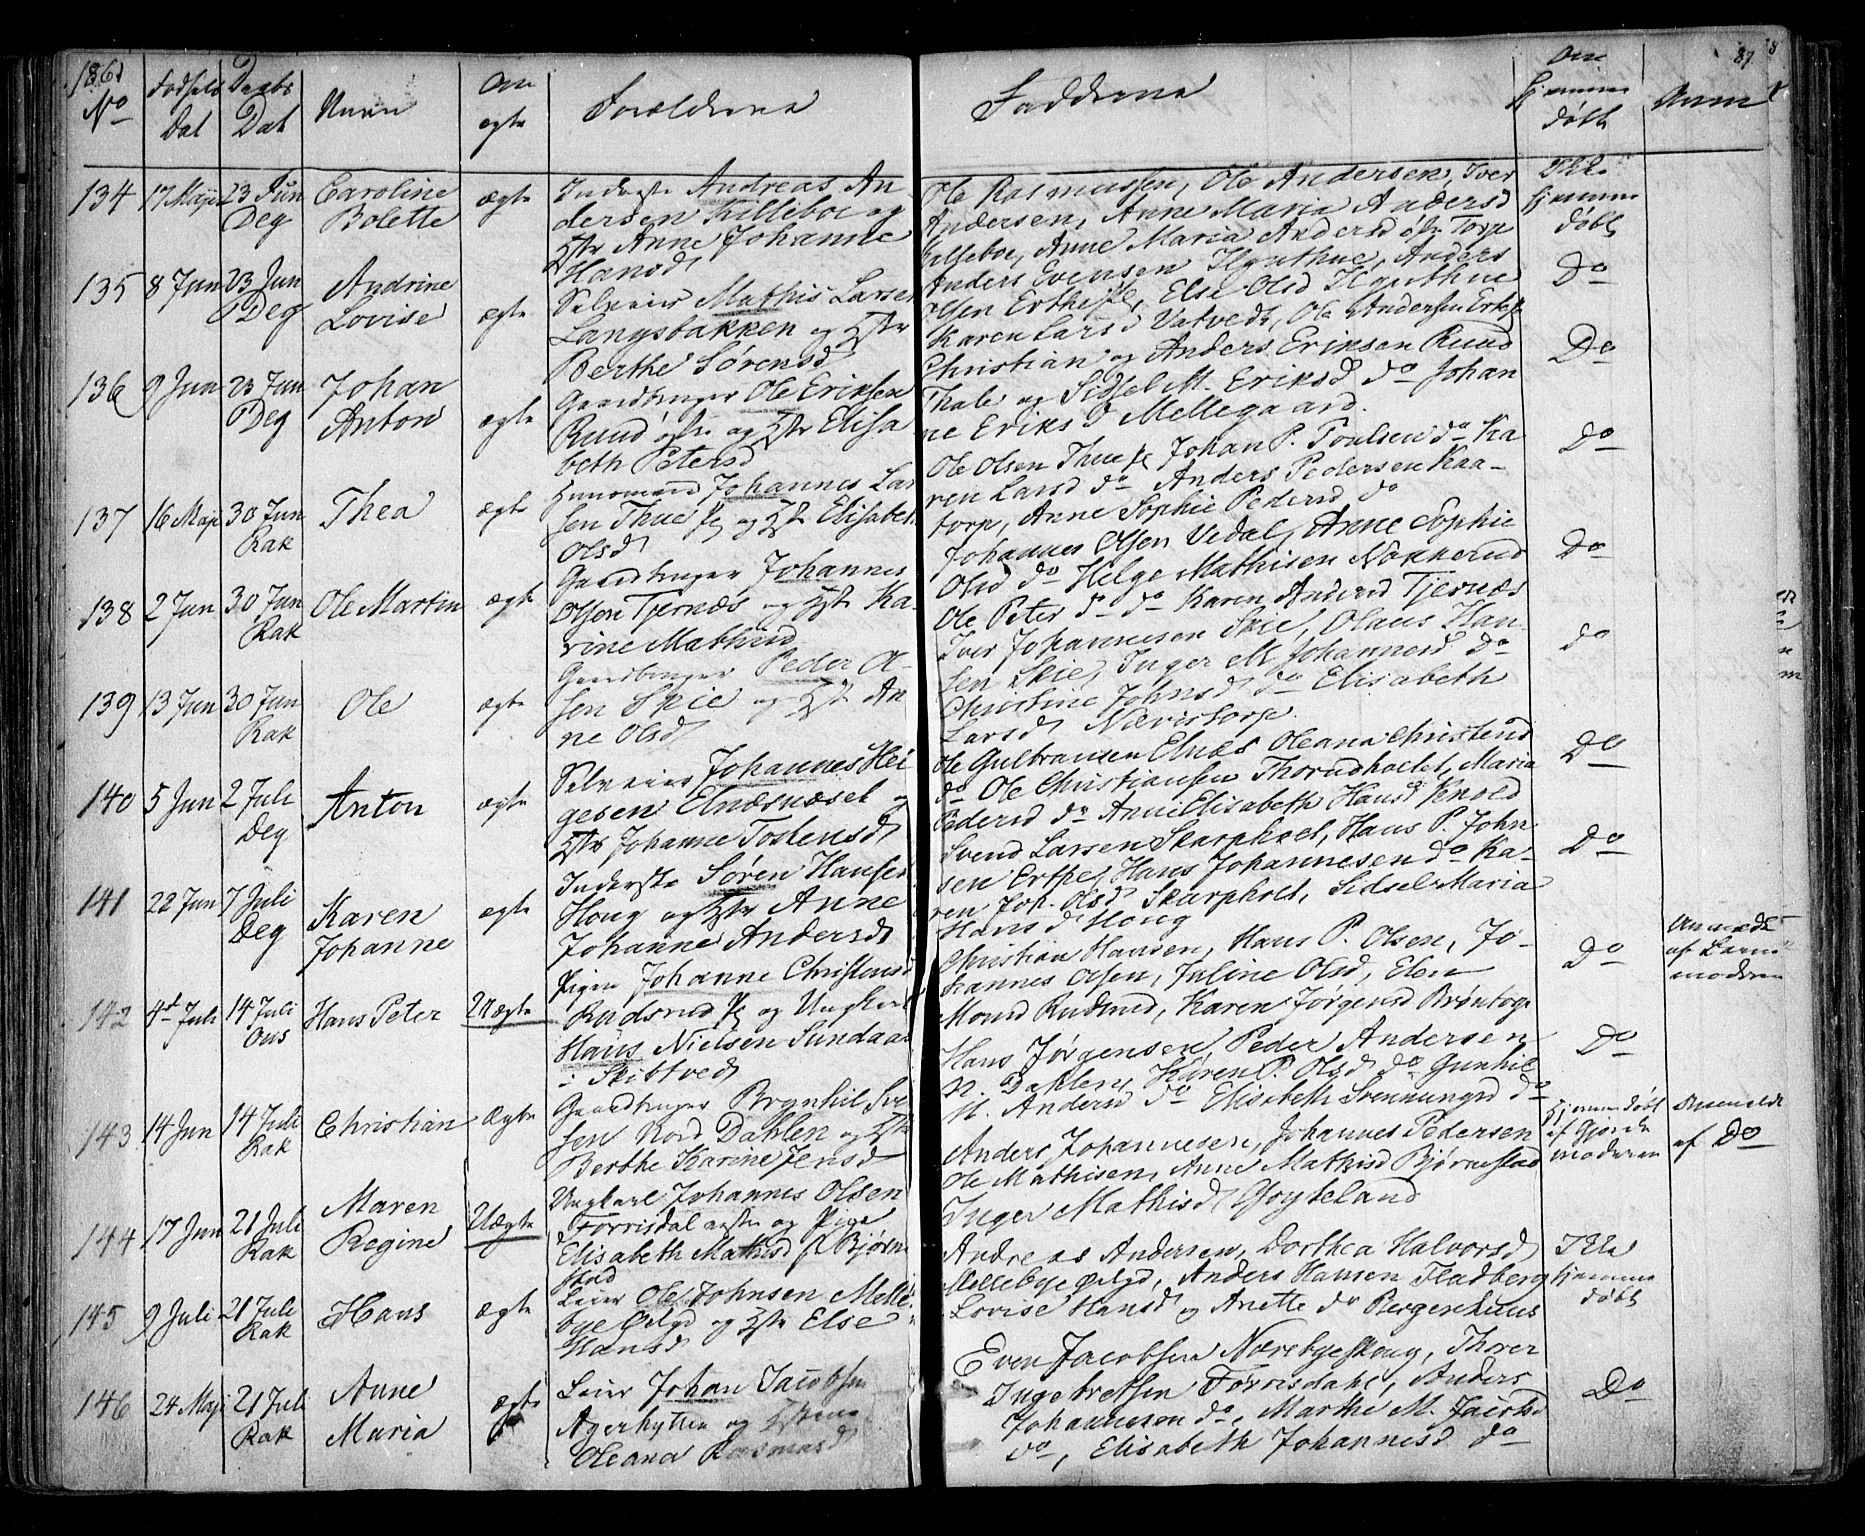 1861
No
Fødsels
Dat
Daabs
Dat
Navn
Om
ægte
Forældrene
Fadderne
Om
hjemme
døbt
Anm
87
134 17 Maji 23 Jun
Deg
Caroline
Bolette
ægte
Inderste Andreas An
dersen Killeboe og
Hstr Anne Johanne
Hansd
Ole Rasmussen, Ole Andersen, Iver
Andersen, Anne Maria Andersd
Killeboe, Anne Maria Andersd Torp
Ikke
hjemme
døbt
135 8 Jun 23 Jun
Deg
Andrine
Lovise
ægte
Selveier Mathis Larsen
Langsbakken og Hstr
Berthe Sørensd
Anders Evensen Haguthue, Anders
Olsen Erthe Pl, Else Olsd Haguthue
Karen Larsd Vatvedt, Ole Andersen
Do
136 9 Jun 23 Jun
Deg
Johan
Anton
ægte
Gaardbruger Ole Eriksen
Ruud og Hstr Elisa
beth Petersd
Christian og Anders Eriksen Ruud
Thale og Sidsel M. Eriksd do Johan
ne Eriksd Mellegaard.
Do
137 16 Maji 30 Jun
Rak
Thea
ægte
Huusmand Johannes Lar
sen Thue Pl og Hstr Elisabeth
Olsd
Ole Olsen Thue Pl Johan P. Poulsen do Ka
ren Larsd do Anders Pedersen Kaa-
torp, Anne Sophie Pedersd do
Do
138 2 Jun 30 Jun
Rak
Ole Martin
ægte
Gaardbruger Johannes
Olsen Tjernæs og Hstr Ka-
rine Mathisd
Johannes Olsen Vedal, Anne Sophie
Olsd do Helge Mathisen Nokkerud
Ole Peter do Karen Andersd Tjernæs
Do
139 13 Jun 30 Jun
Rak
Ole
ægte
Gaardbruger Peder O-
sen Skie og Hstr An
ne Olsd
Iver Johannesen Skie, Olaus Han
sen Skie, Inger M Johannesd do
Christine Johnsd do Elisabeth
Larsd
do
140 5 Jun 2 Juli
Deg
Anton
ægte
Selveier Johannes Hel
gesen Elnæsnæset og
Hstr Johanne Tostensd
Ole Gulbransen Elnæs Oleana Christensd
do Ole Christiansen Thorudholet, Maria
Pedersd do Anne Elisabeth Hansd
Do
141 22 Jun 7 Juli
Deg
Karen
Johanne
ægte
Inderste Søren Hansen
Houg og Hstr Anne
Johanne Andersd
Svend Larsen Skarpholt, Hans P. John
sen Erthe Pl Hans Johannesen do Ka-
ren Joh. Olsd Skarpholt, Sidsel Maria
Hansd Houg
Do
142 4d Juli 14 Juli
Ons
Hans Peter
Uægte
Pigen Johanne Christensd
Rudsrud Pl og Ungkarl
Hans Nielsen Sundaas
i Skibtvedt
Christian Hansen, Hans P. Olsen, Jo-
hannes Olsen, Juline Olsd, Elen
Monsd Rudsrud, Karen Jørgensd
Do
Anmeldt
af Barne
moderen
143 14 Jun 14 Juli
Rak
Christian
Ægte
Gaardbruger Brynhil Sve
sen Nord Dahlen og Hstr
Berthe Karine Jensd
Hans Jørgensen Peder Andersen
N. Dahlen, Karen P. Olsd do Gunhil
M. Andersd do Elisabeth Svennungsd do
Do
144 17 Jun 21 Juli
Rak
Maren
Regine
Uægte
Ungkarl Johannes Olsen
Torrisdal og Pige
Elisabeth Mathisd Bjørne
stad
Anders Johannesen, Johannes Pedersen
Ole Mathisen, Anne Mathisd Bjørnestad
Inger Mathisd Gryteland
Hjemmedøbt
af Gjorde
moderen
Anmeldt
af Do
145 9 Juli 21 Juli
Rak
Hans
ægte
Leier Ole Johnsen Melle-
bye Østgd og Hstr Else
Hansd
Andreas Andersen, Dorthea Halvorsd
Mellebye Østgd, Anders Hansen Fladberg
Lovise Hansd og Anette do Bergenhuus
Ikke
hjemme
døbt
146 24 Maji 21 Juli
Rak
Anne
Maria
ægte
Leier Johan Jacobsen
Agerhytten og Hstru
Oleana Rasmusd
Even Jacobsen Nærebyeskoug, Thorer
Ingebretsen Torrisdahl, Anders
Johannesen do, Marthe M. Jacobsd
do, Elisabeth Johannesd do
Do